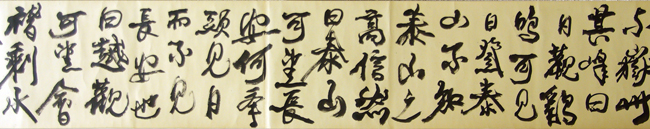 嶽
其峰曰
日觀鷄
鳴可見
日登泰
山不知
泰山之
高信然
曰泰山
可望長
安何舉
頭見日
而不見
長安也
曰越觀
可望會
稽剩水